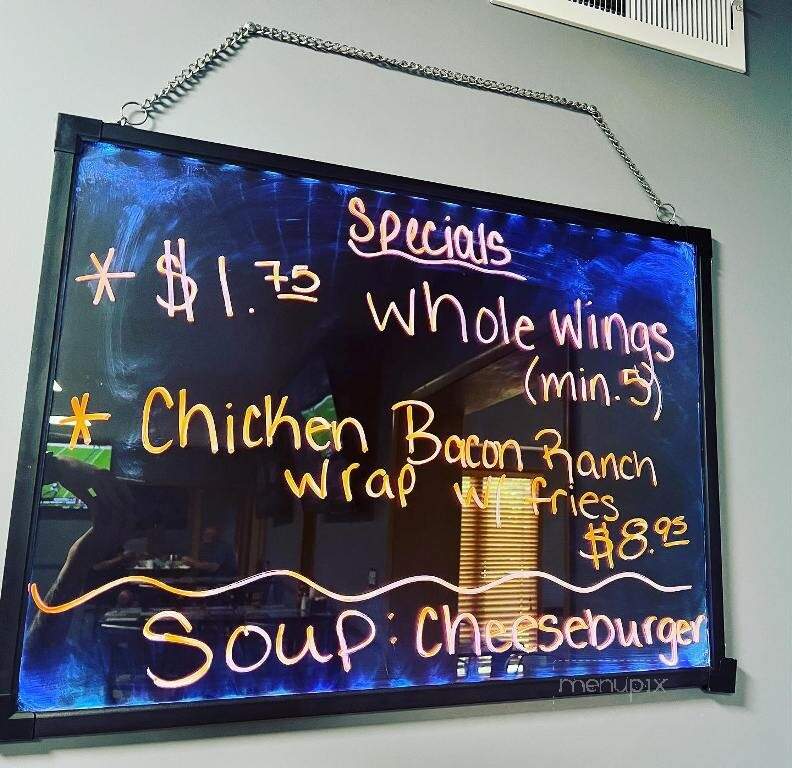 Specials
* $1.75 Whole Wings
(min. 5)
* Chicken Bacon Ranch
Wrap w/ fries
$8.95
Soup: Cheeseburger
menupix